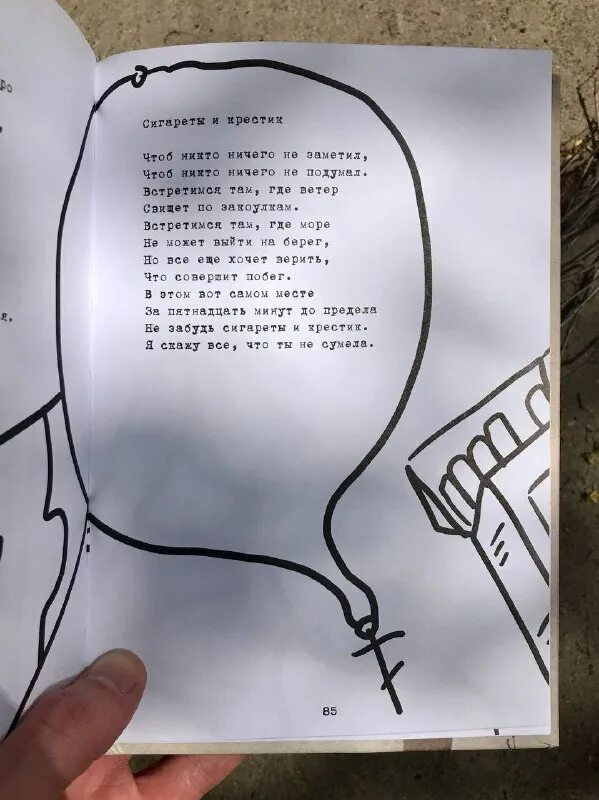 ро
я.
Сигареты и крестик
Чтоб никто ничего не заметил,
Чтоб никто ничего не подумал.
Встретимся там, где ветер
Свищет по закоулкам.
Встретимся там, где море
Не может выйти на берег,
Но все еще хочет верить,
Что совершит побег.
В этом вот самом месте
За пятнадцать минут до предела
Не забудь сигареты и крестик.
Я скажу все, что ты не сумела.
85